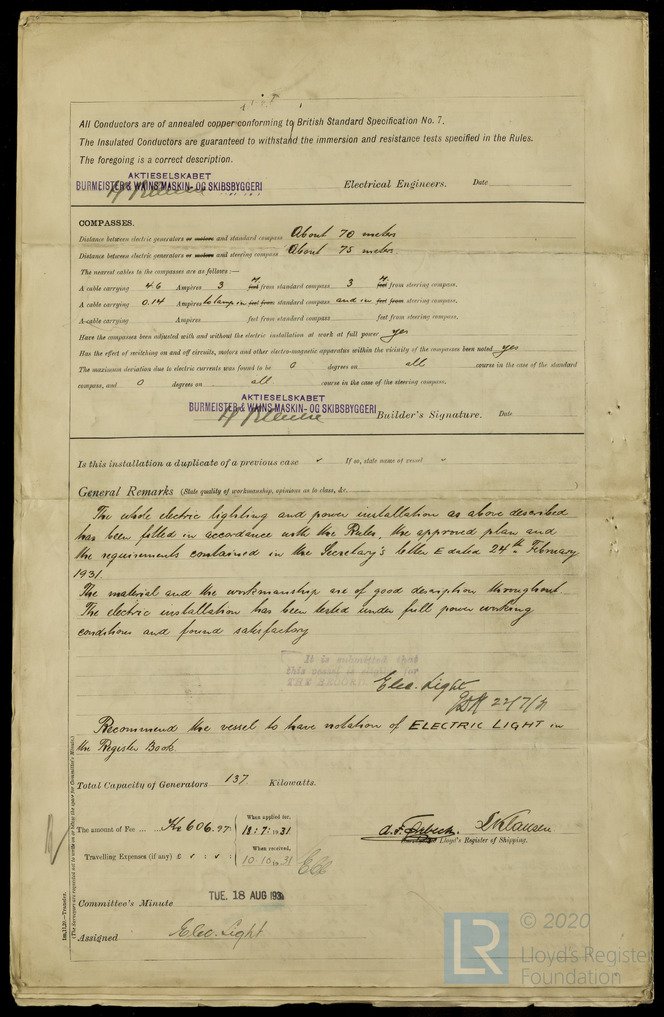 All Conductors are of annealed copper conforming to British Standard Specification No. 7.
The Insulated Conductors are guaranteed to withstand the immersion and resistance tests specified in the Rules.
The foregoing is a correct description.
AKTIESELSKABET
BURMEISTER & WAINS MASKIN- OG SKIBSBYGGERI Electrical Engineers. Date
COMPASSES.
Distance between electric generators or motors and standard compass About 70 meter
Distance between electric generators or motors and steering compass About 75 meter.
The nearest cables to the compasses are as follows :—
A cable carrying 4.6 Ampères 3 m feet from standard compass 3 m feet from steering compass.
A cable carrying 0.14 Ampères to lamp in feet from standard compass and in feet from steering compass.
A cable carrying Ampères feet from standard compass feet from steering compass.
Have the compasses been adjusted with and without the electric installation at work at full power yes
Has the effect of switching on and off circuits, motors and other electro-magnetic apparatus within the vicinity of the compasses been noted yes
The maximum deviation due to electric currents was found to be 0 degrees on all course in the case of the standard
compass, and 0 degrees on all course in the case of the steering compass.
AKTIESELSKABET
BURMEISTER & WAINS MASKIN- OG SKIBSBYGGERI Builder's Signature. Date
Is this installation a duplicate of a previous case If so, state name of vessel
General Remarks (State quality of workmanship, opinions as to class, &c.)
The whole electric lighting and power installation as above described
has been fitted in accordance with the Rules, the approved plan and
the requirements contained in the Secretary's letter E dated 24th February
1931.
The material and the workmanship are of good description throughout.
The electric installation has been tested under full power working
conditions and found satisfactory
It is submitted that
this vessel is eligible for
THE RECORD
Elec. Light
22/7/31
Recommend the vessel to have notation of ELECTRIC LIGHT in
the Register Book.
Total Capacity of Generators 137 Kilowatts.
The amount of Fee ... Kr 606.97 When applied for, 18.7.1931
Travelling Expenses (if any) £ : : When received, 10.10.1931
Surveyor to Lloyd's Register of Shipping.
Committee's Minute TUE. 18 AUG 1931
Assigned Elec. Light
1m,11,29.—Transfer.
(The Surveyors are requested not to write on or below the space for Committee's Minute.)
LR
© 2020
Lloyd's Register
Foundation